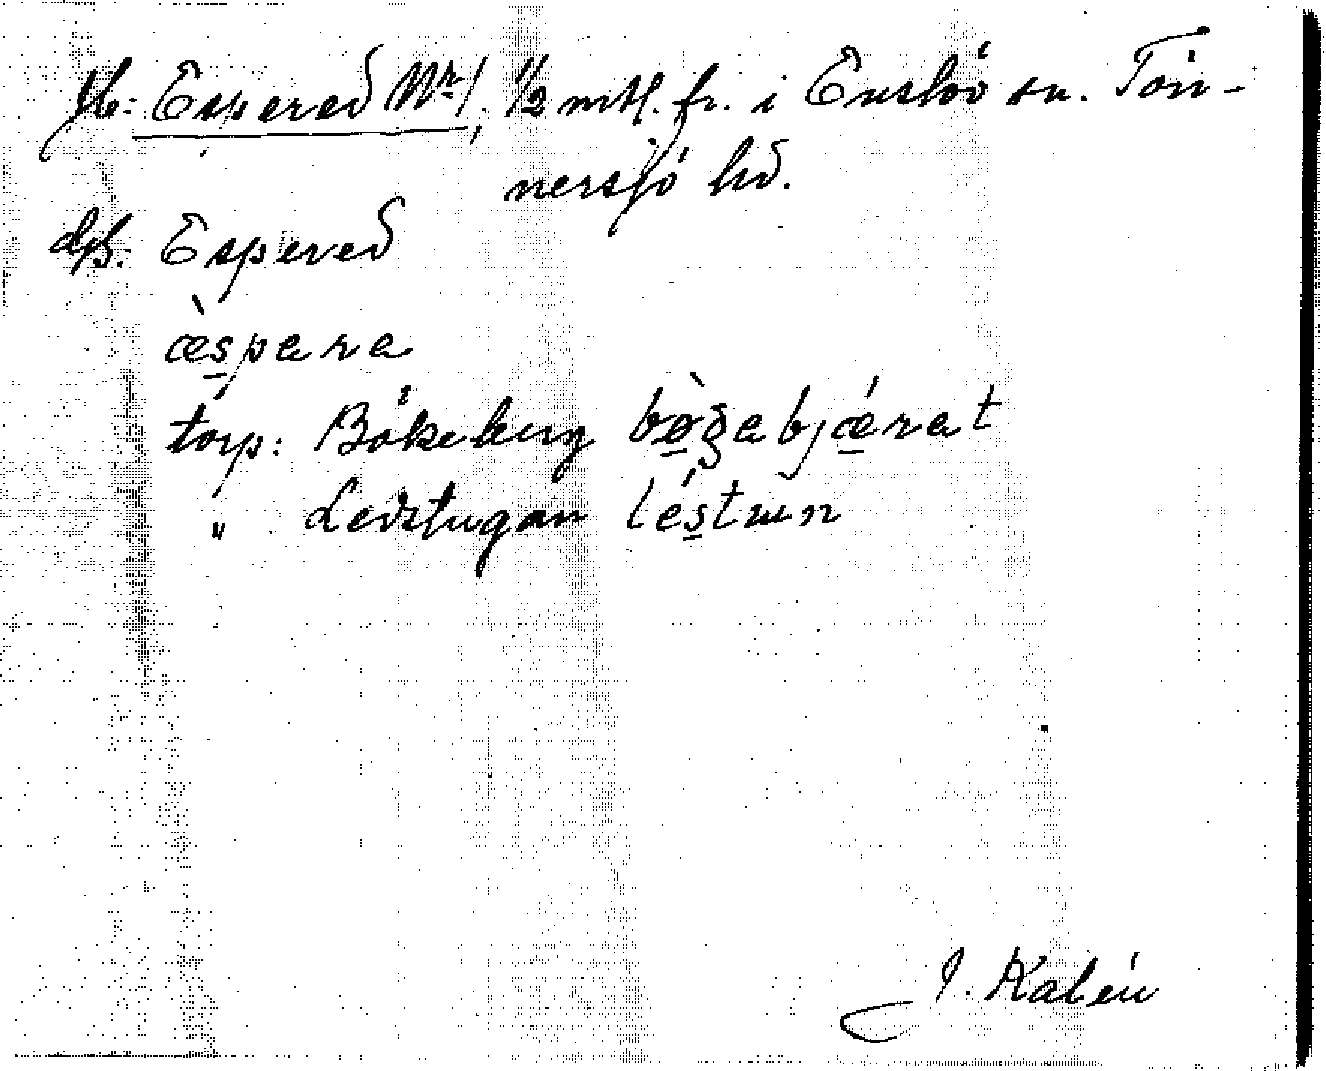 jb: Espered Nr 1, 1/2 mtl. fr. i Enslöv sn. Tön-
nersjö hd.
dps. Espered
æ̀s̠para
torp: Bökeberg bø̠̀ʒabjǽ̠rat
" Ledstugan lés̠tɯn
J. Kalén